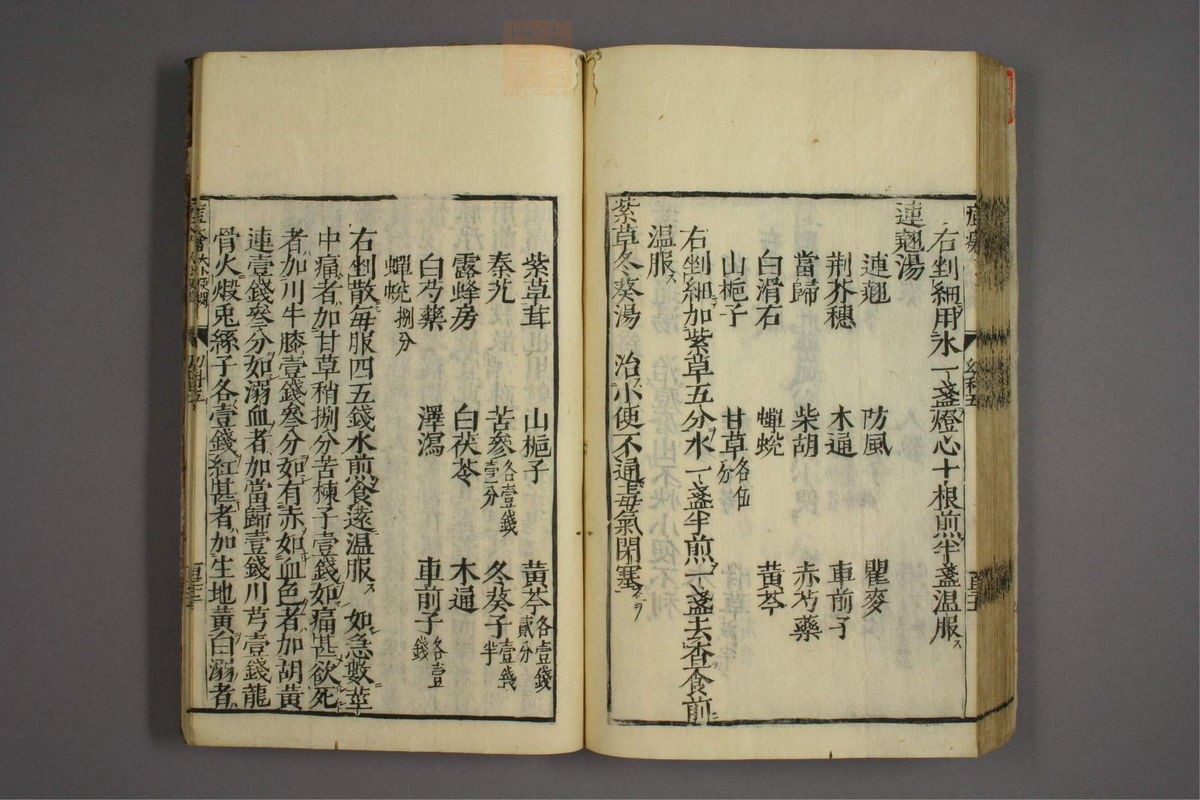 右剉細用水一盞燈心十根煎半盞温服ス
連翹湯
連翹 防風 瞿麥
荆芥穗 木通 車前子
當歸 柴胡 赤芍藥
白滑石 蟬蛻 黄芩
山梔子 甘草各伍分
右剉細加紫草五分水一盞半煎一盞去査食前
温服ス
紫草冬葵湯 治小便不通毒氣閉塞
紫草茸 山梔子 黄芩各壹錢貳分
秦艽 苦參各壹錢壹分 冬葵子壹錢半
露蜂房 白茯苓 木通
白芍藥 澤瀉 車前子各壹錢
蟬蛻捌分
右剉散毎服四五錢水煎食遠温服ス 如急數莖
中痛者加甘草稍捌分苦楝子壹錢如痛甚欲死
者加川牛膝壹錢叁分如有赤如血色者加胡黄
連壹錢叁分如溺血者加當歸壹錢川芎壹錢龍
骨火煅兎絲子各壹錢紅甚者加生地黄白溺者